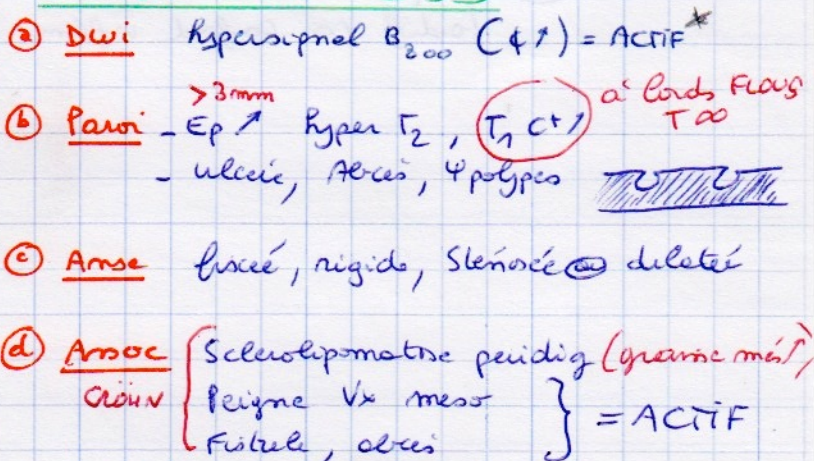 ⓐ DWI Hypersignal B₂₀₀ (¢↑) = ACTIF*
>3mm
ⓑ Paroi - Ep ↗ Hyper T₂, T₁ C+↗ à bords FLOUS
T∞
- Ulcère, Abcès, Ψpolypes
ⓒ Anse fixée, rigide, Sténosée ou dilatée
ⓓ Assoc Sclérolipomatose péridig (graisse més↑)
CROHN Peigne Vx meso
Fistule, abcès = ACTIF